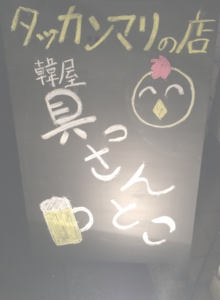 タッカンマリの店
韓屋
具っさんとこ